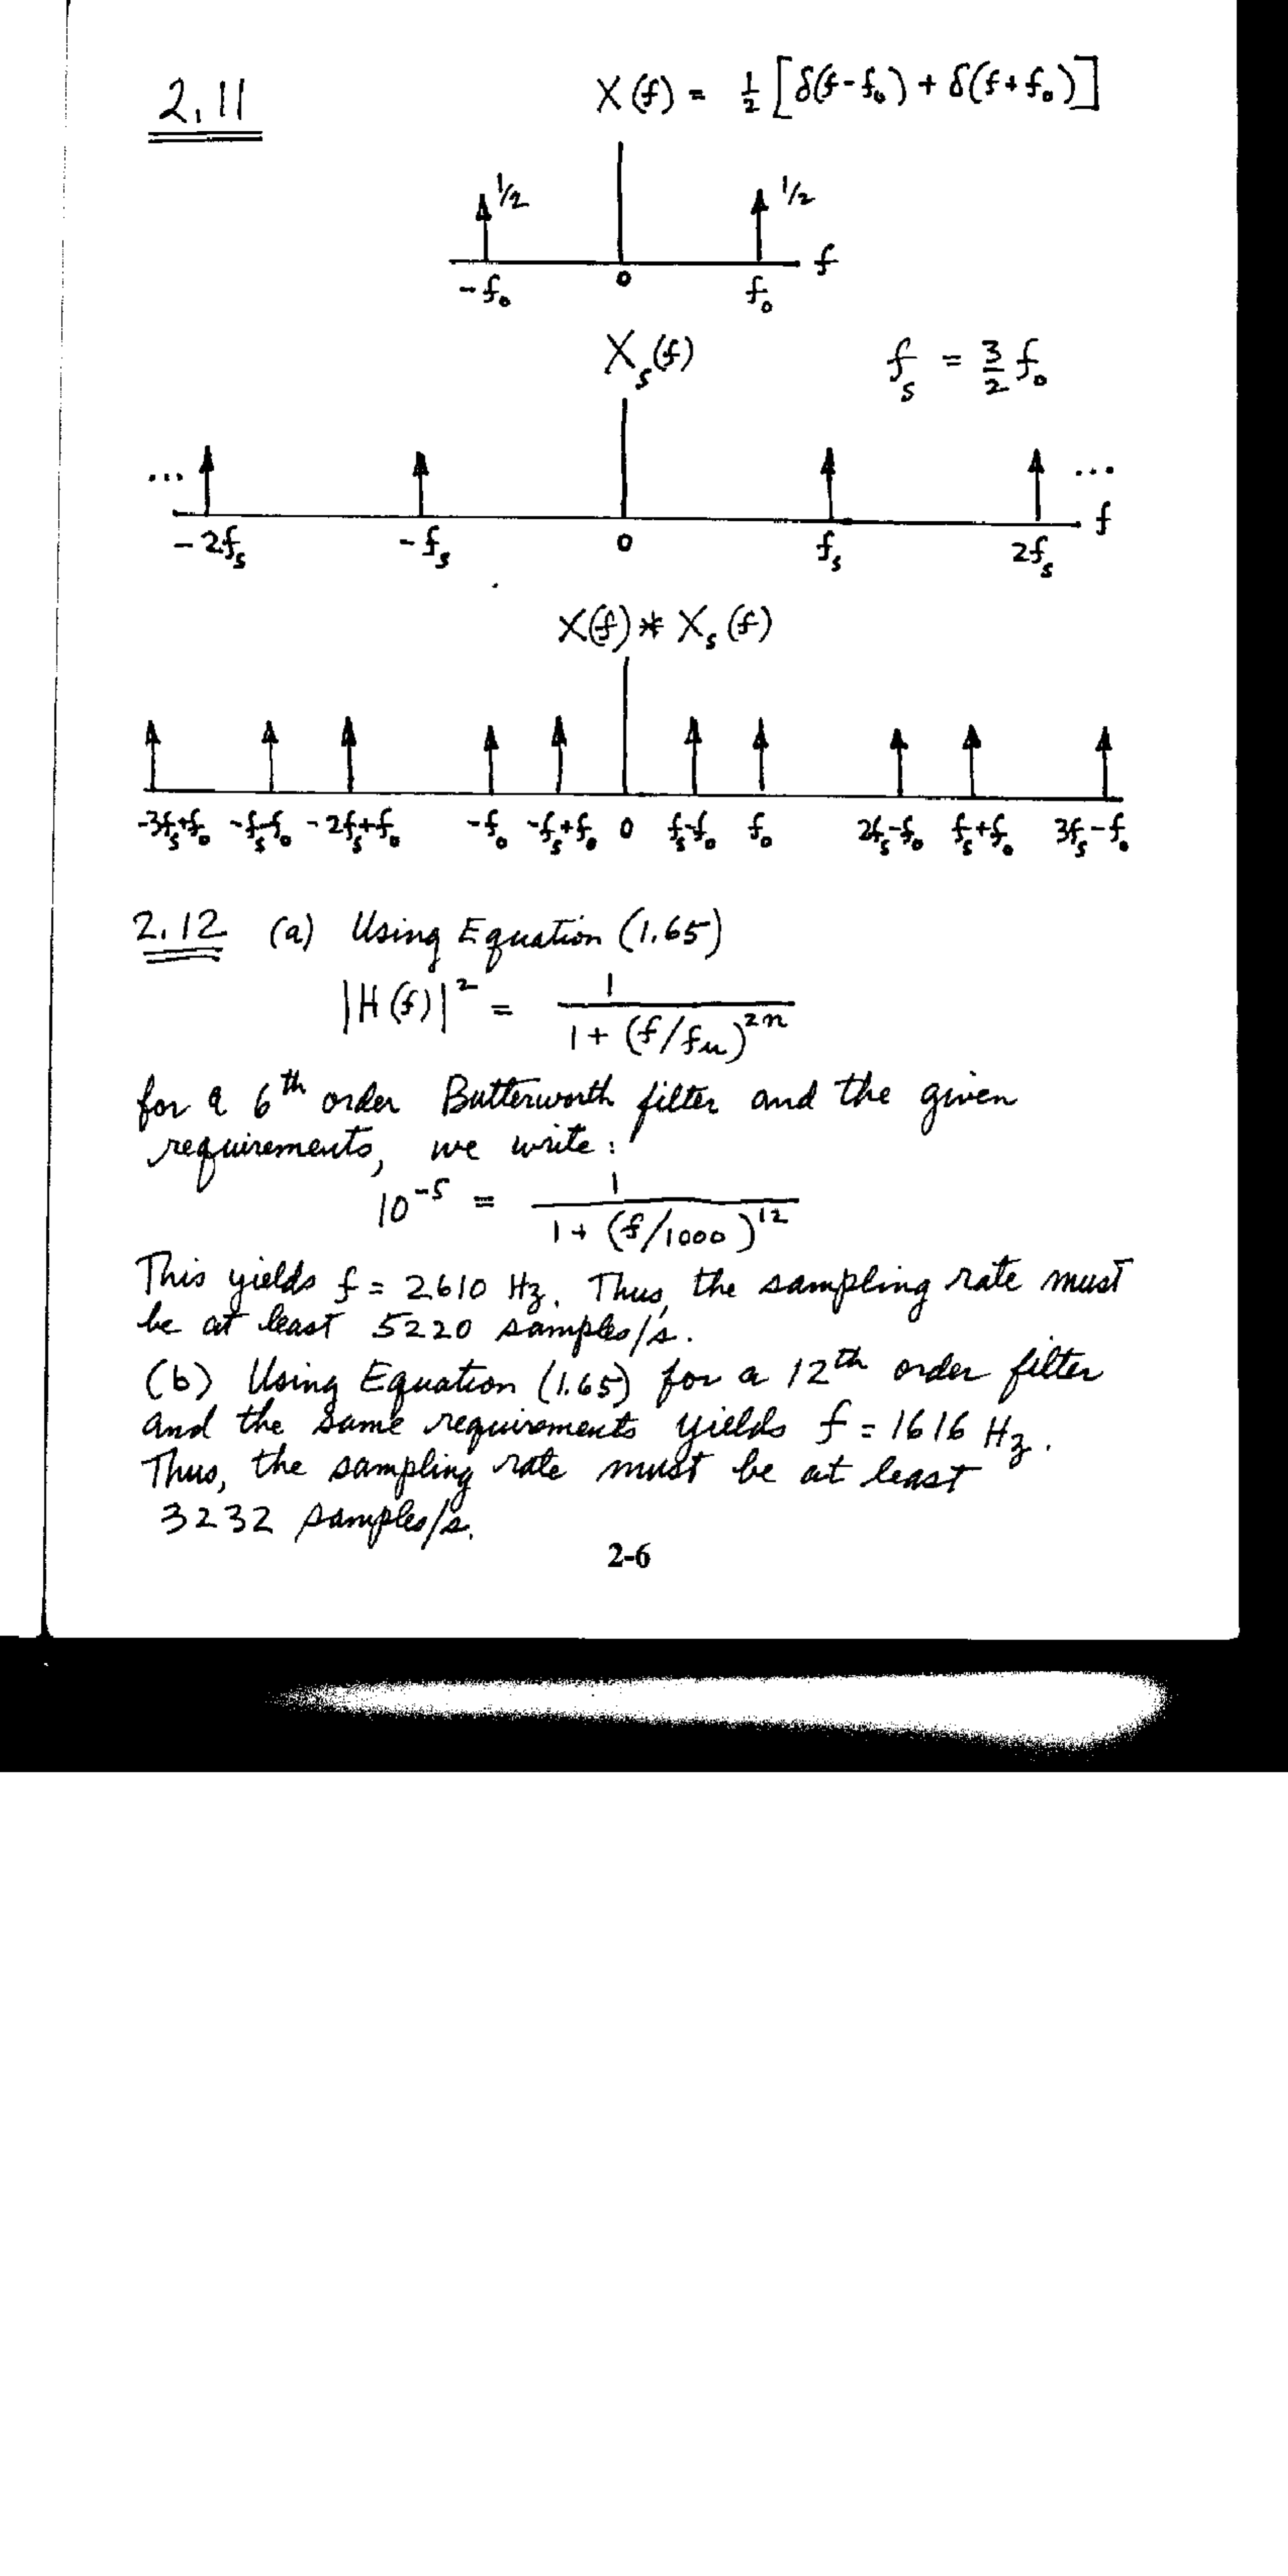 2.11
X(f) = 1/2 [δ(f-f₀) + δ(f+f₀)]
1/2 1/2
f
-f₀ 0 f₀
Xₛ(f) fₛ = 3/2 f₀
... ...
f
-2fₛ -fₛ 0 fₛ 2fₛ
X(f) * Xₛ(f)
-3fₛ+f₀ -fₛ-f₀ -2fₛ+f₀ -f₀ -fₛ+f₀ 0 fₛ-f₀ f₀ 2fₛ-f₀ fₛ+f₀ 3fₛ-f₀
2.12 (a) Using Equation (1.65)
|H(f)|² = 1 / (1 + (f/fᵤ)²ⁿ)
for a 6th order Butterworth filter and the given
requirements, we write:
10⁻⁵ = 1 / (1 + (f/1000)¹²)
This yields f = 2610 Hz. Thus, the sampling rate must
be at least 5220 samples/s.
(b) Using Equation (1.65) for a 12th order filter
and the same requirements yields f = 1616 Hz.
Thus, the sampling rate must be at least
3232 samples/s.
2-6